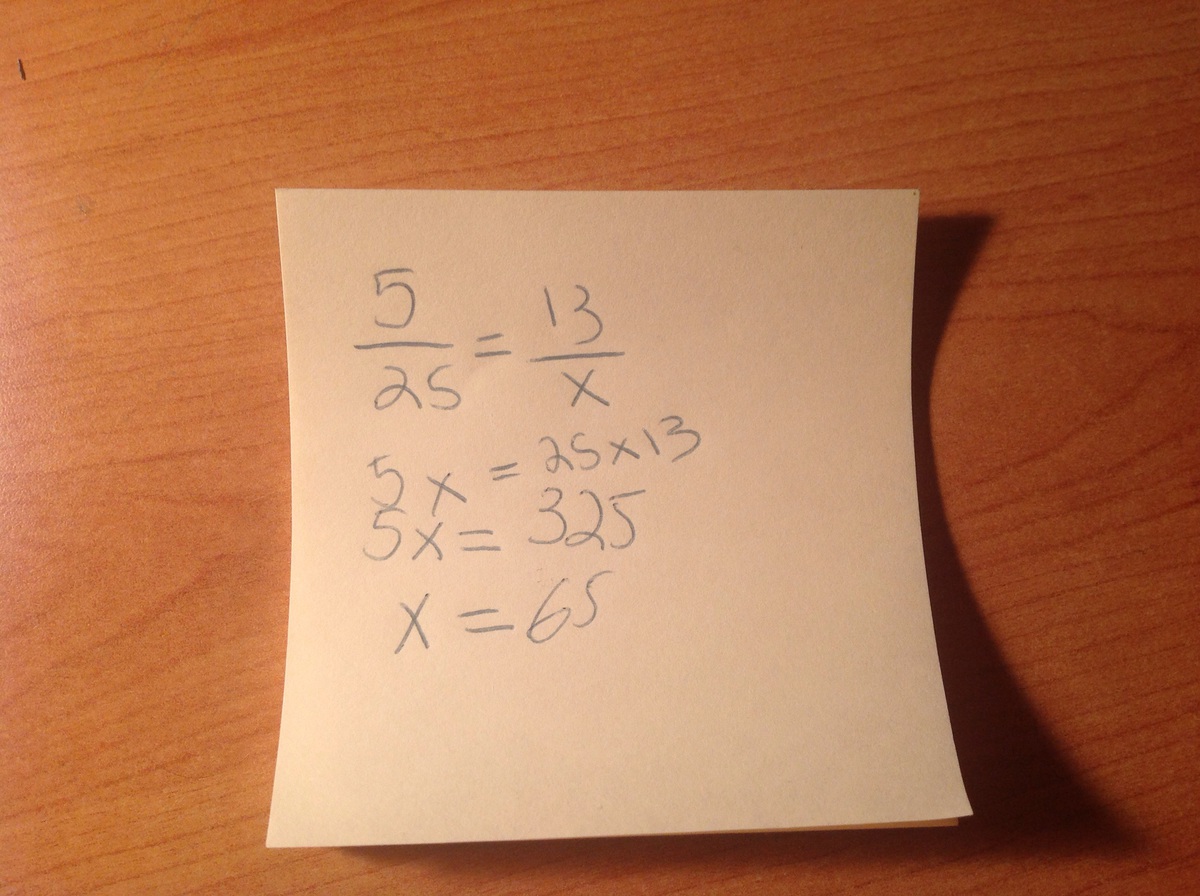 5/25 = 13/x
5x = 25x13
5x = 325
x = 65